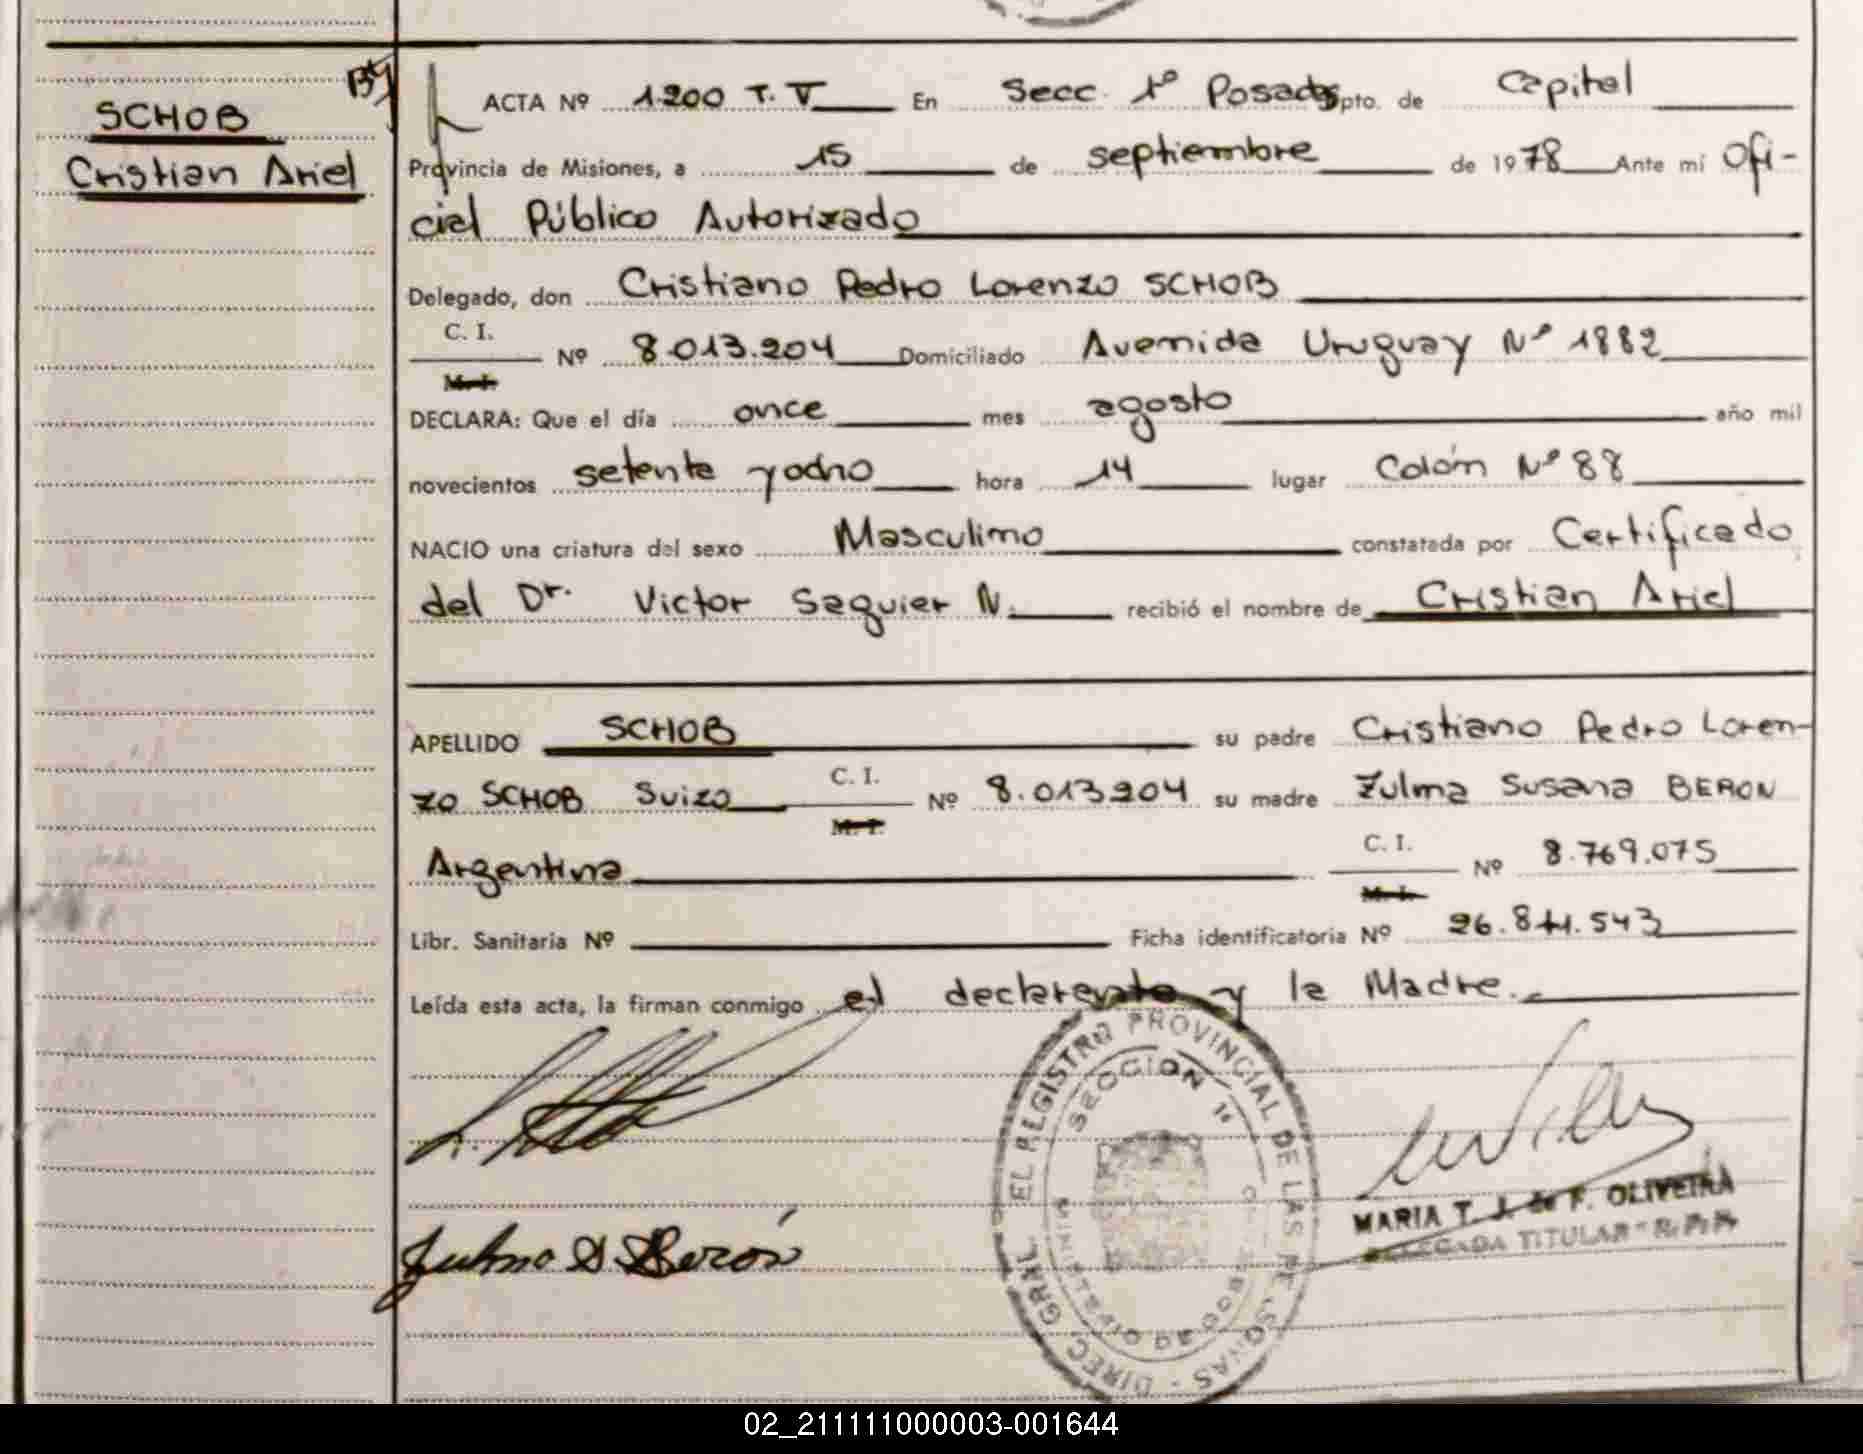 SCHOB
Cristian Ariel
ACTA Nº 1200 T. V En Secc. 1º Posadas pto. de Capital
Provincia de Misiones, a 15 de septiembre de 1978 Ante mí Ofi-
cial Público Autorizado
Delegado, don Cristiano Pedro Lorenzo SCHOB
C. I.
Nº 8.013.204 Domiciliado Avenida Uruguay Nº 1882
M. I.
DECLARA: Que el día once mes agosto año mil
novecientos setenta y ocho hora 14 lugar Colón Nº 88
NACIO una criatura del sexo Masculino constatada por Certificado
del Dr. Victor Saguier N. recibió el nombre de Cristian Ariel
APELLIDO SCHOB su padre Cristiano Pedro Loren-
zo SCHOB Suizo C. I. Nº 8.013.204 su madre Zulma Susana BERON
M. I.
Argentina C. I. Nº 8.769.075
M. I.
Libr. Sanitaria Nº Ficha identificatoria Nº 26.811.543
Leída esta acta, la firman conmigo el declarante y la Madre.
DIREC. GRAL. DEL REGISTRO PROVINCIAL DE LAS PERSONAS
SECCION 1ª
Zulma S. Berón
MARIA T. J. de F. OLIVEIRA
DELEGADA TITULAR - R.P.P.
02_211111000003-001644